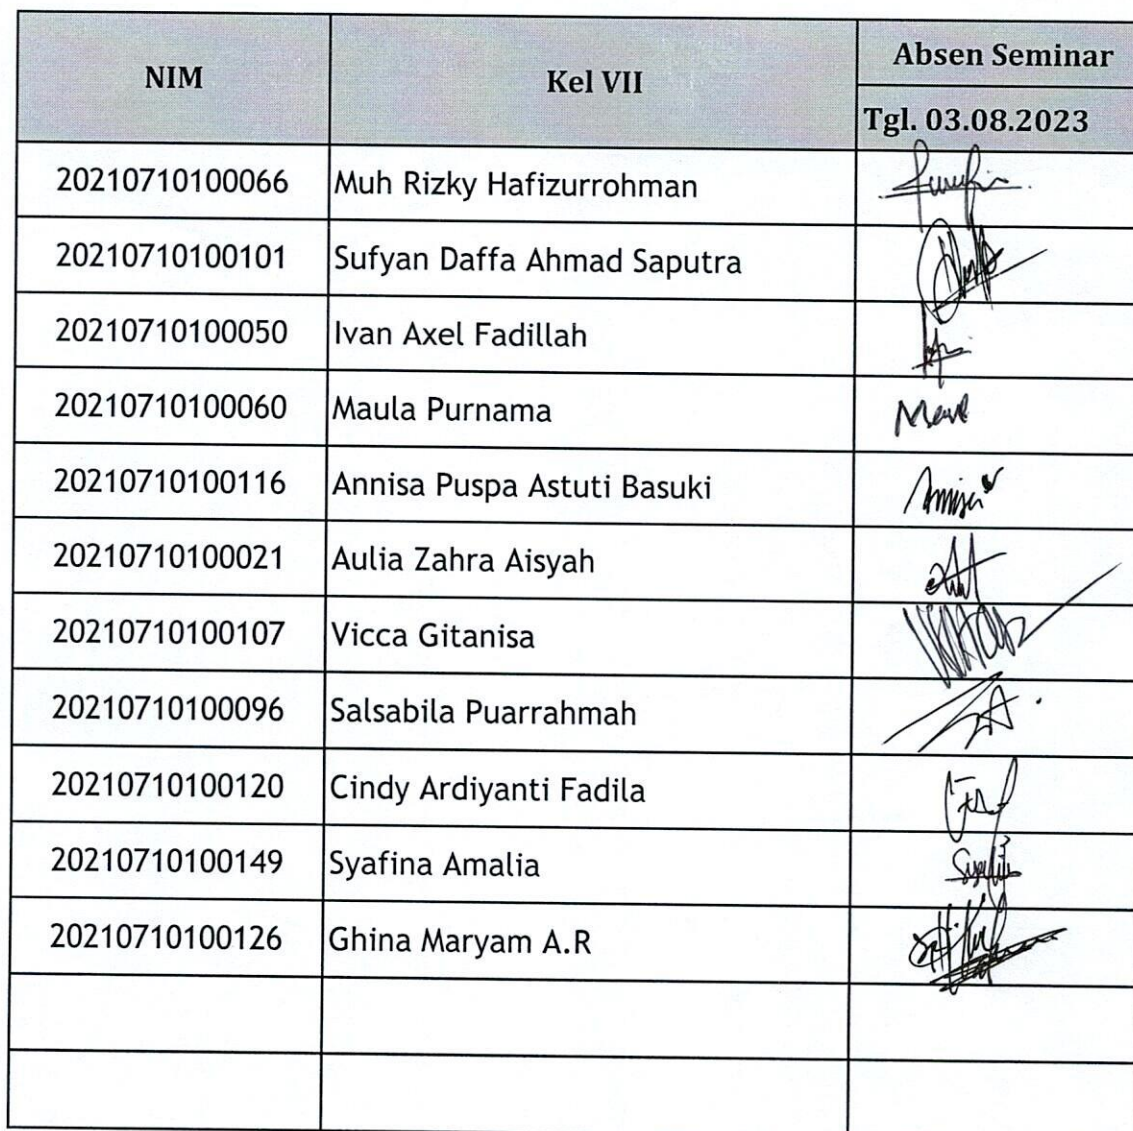 NIM Kel VII Absen Seminar
Tgl. 03.08.2023
20210710100066 Muh Rizky Hafizurrohman
20210710100101 Sufyan Daffa Ahmad Saputra
20210710100050 Ivan Axel Fadillah
20210710100060 Maula Purnama
20210710100116 Annisa Puspa Astuti Basuki
20210710100021 Aulia Zahra Aisyah
20210710100107 Vicca Gitanisa
20210710100096 Salsabila Puarrahmah
20210710100120 Cindy Ardiyanti Fadila
20210710100149 Syafina Amalia
20210710100126 Ghina Maryam A.R